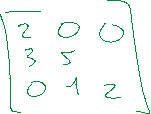 2 0 0
3 5
0 1 2